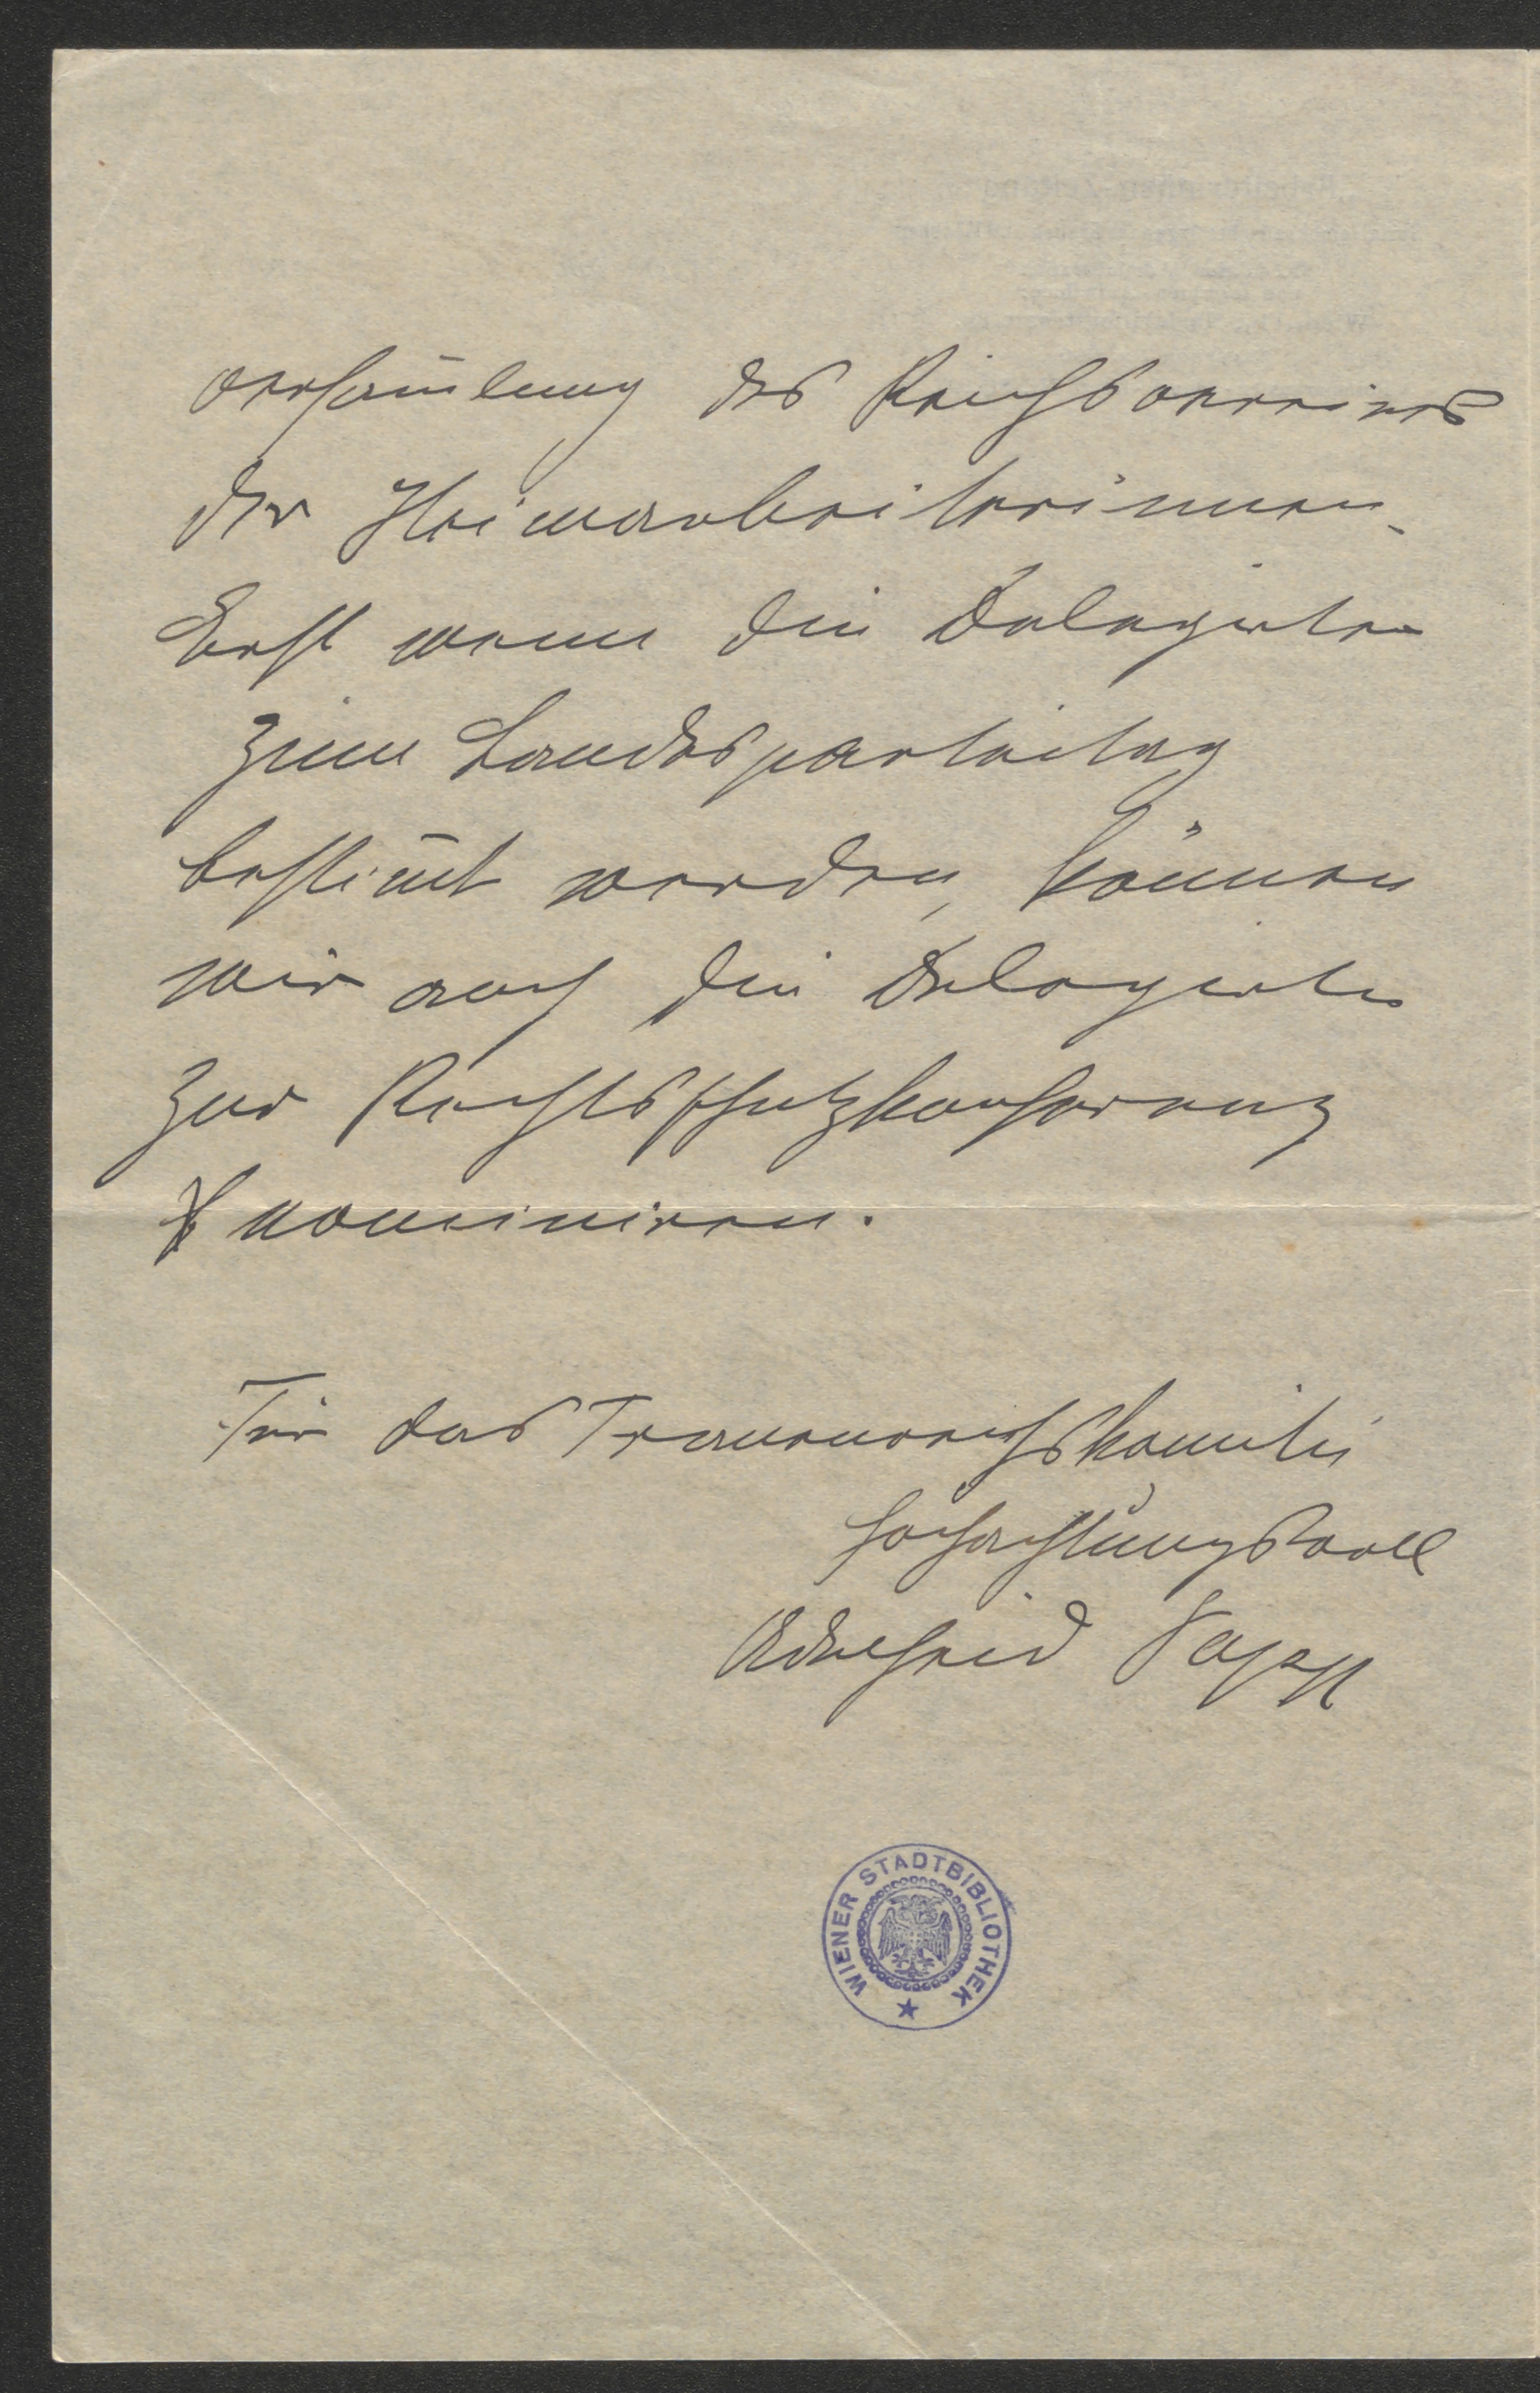 versam̅lung des Reichsvereines
der Heimarbeiterinnen.
Erst wenn die Delegierten
zum Landesparteitag
bestim̅t werden, können
wir auch die Delegierte
zur Rechtsschutzkonferenz
nominieren.
Für das Frauenreichskomite
hochachtungsvoll
Adelheid Popp
WIENER STADTBIBLIOTHEK